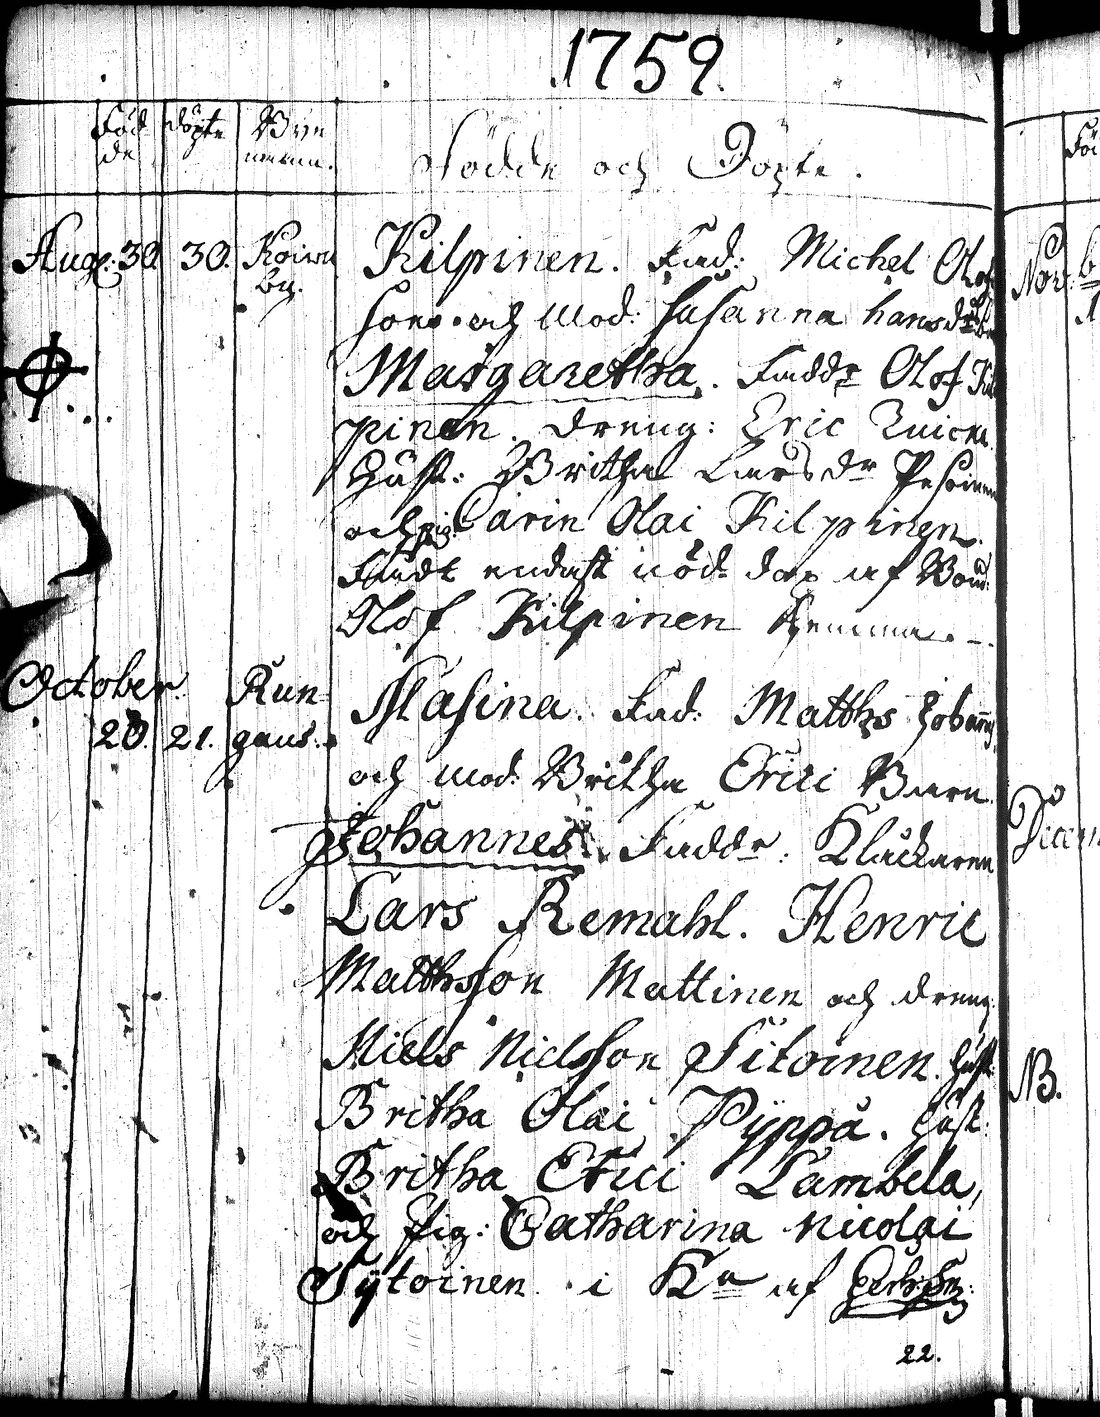 1759.
Föd
de
döpte
Bye
namn.
Födde och Döpte.
Aug: 30 30. Koivu
by.
Kilpinen. Fad: Michel Olof
son och Mod: Susanna hansdr
Margaretha. Faddr Olof Kil
pinen. dreng: Eric
Hust: Britha Larsdr Pesoinen
och pig: Carin Olai Kilpinen.
endast nöd: döp af Bond:
Olof Kilpinen hemma.
October. Run
20. 21. gaus.
Masina. Fad: Matths Johann
och mod: Britha Erici Barn
Johannes. Faddr: Klåckaren
Lars Remahl. Henric
Matthsson Mattinen och dreng
Niels Nielsson Sitoinen. hust:
Britha Olai Pyppä. hust:
Britha Erici Lambela,
och pig: Catharina Nicolai
Sytoinen i Ka af
22.
Nov:
Decem
NB.